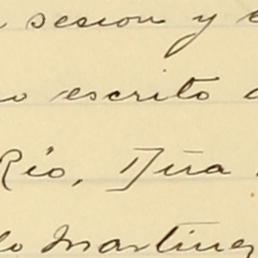 sesion y
escrito
Río, Dña
Martinez